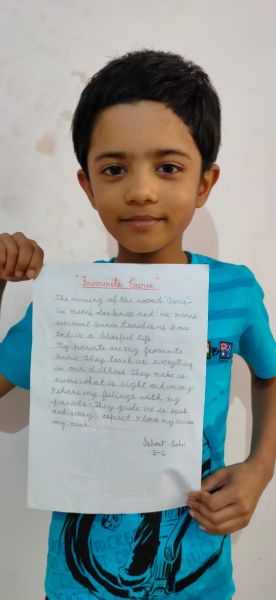 "Favourite Guru"
The meaning of the word 'Guru'-
Gu means darkness and 'ru' means
remount Guru teaches us how
to live a blissful life.
My parents are my favourite
Guru. They teach us everything
in our childhood. They make us
aware what is right and wrong
I share my feelings with my
parents. They guide me in each
and every aspect I love my Guru
very much.
Sahu
5-C